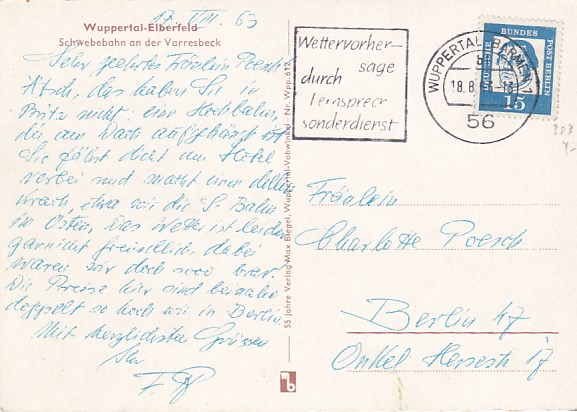 17. VIII. 63
Wuppertal-Elberfeld
Schwebebahn an der Varresbeck
Sehr geehrtes Fräulein Poesch
Ätsch, das haben Sie in
Britz nicht: eine Hochbahn,
die am Dach aufgehängt ist
Sie fährt dicht am Hotel
vorbei und macht einen dollen
Krach, etwa wie die S. Bahn
im Osten. Das Wetter ist leider
garnicht freundlich, dabei
waren wir doch so brav.
Die Preise hier sind beinahe
doppelt so hoch wie in Berlin.
Mit herzlichsten Grüssen
Ihr
55 Jahre Verlag Max Biegel, Wuppertal-Vohwinkel - Nr. Wpp. 612
Wettervorher-
sage
durch
Fernsprech
sonderdienst
WUPPERTAL-BARMEN
18.8.
56
DEUTSCHE BUNDES POST BERLIN
15
Fräulein
Charlotte Poesch
Berlin 47
Onkel Herse str 17